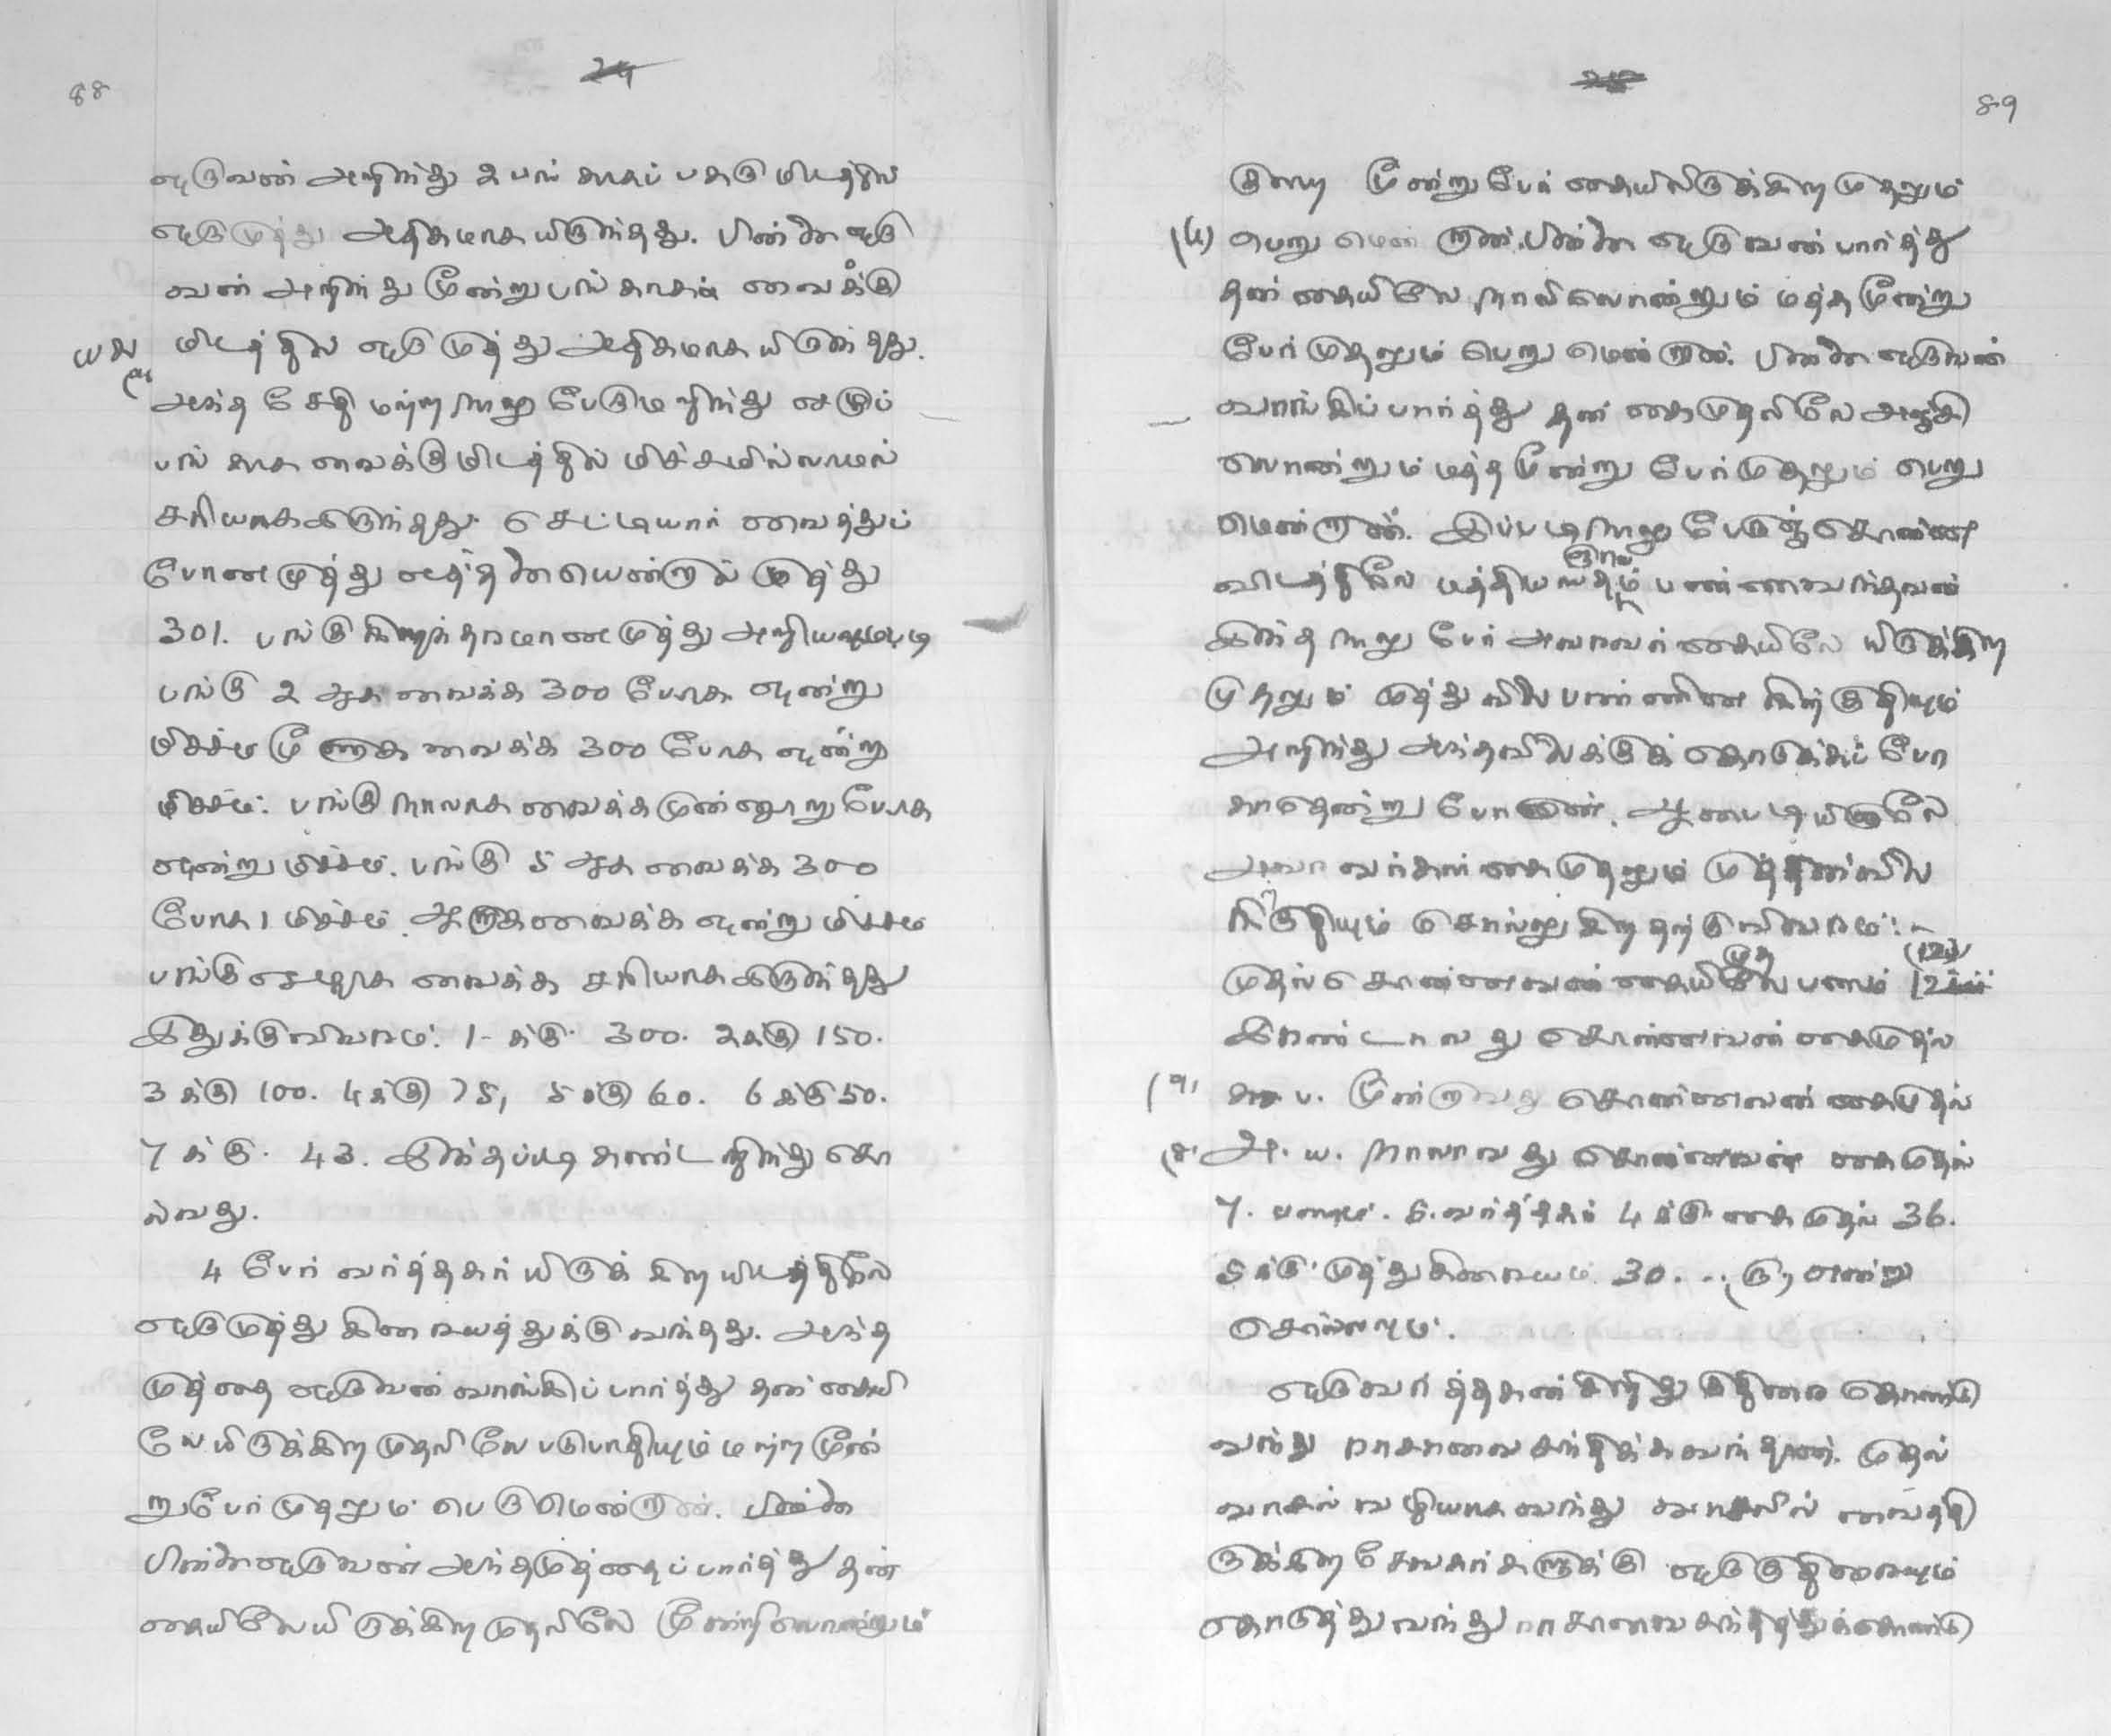 88
24
ஒருவன் அறிந்து 2 பங் காகப் பகரு மிடத்தில்
ஒருமுத்து அதிகமாக யிருந்தது. பின்னை ஒரு
வன் அறிந்து மூன்று பங் காகக் வைக்கு
மிடத்தில் ஒரு முத்து அதிகமாக யிருந்தது.
அந்த சேதி மற்ற நாலு பேருமறிந்து ஏழுப்
பங் காக வைக்குமிடத்தில் மிச்சமில்லாமல்
சரியாகஇருந்தது. செட்டியார் வைத்துப்
போன முத்து எத்தனையென்றால் முத்து
301. பங்கு கிறந்தாமான முத்து அறியவும்படி
பங்கு 2 ஆக வைக்க 300 போக ஒன்று
மிச்சம் மூணாக வைக்க 300 போக ஒன்று
மிச்சம். பங்கு நாலாக வைக்க முன்னூறு போக
ஒன்று மிச்சம். பங்கு 5 ஆக வைக்க 300
போக 1 மிச்சம். ஆறாக வைக்க ஒன்று மிச்சம்
பங்கு ஏழாக வைக்க சரியாக இருந்தது
இதுக்கு விவரம். 1-க்கு 300. 2க்கு 150.
3 க்கு 100. 4க்கு 75, 5க்கு 60. 6 க்கு 50.
7 க்கு. 43. இந்தப்படி கண்டறிந்து சொ
ல்வது.
4 பேர் வர்த்தகர் யிருக் கிற யிடத்திலே
ஒருமுத்து கிரையத்துக்கு வந்தது. அந்த
முத்தை ஒருவன் வாங்கிப் பார்த்து தன் கையி
லே யிருக்கிற முதலி லே படுபாதியும் மற்ற மூன்
றுபேர் முதலும் பெருமென்றான். பின்னை
பின்னை ஒருவன் அந்தமுத்தைப் பார்த்து தன்
கையிலேயிருக்கிற முதலிலே மூன்றிலொன்றும்
89
குறை மூன்று பேர் கையிலிருக்கிற முதலும்
பெறு மென் றான். பின்னை ஒருவன் பார்த்து
தன் கையிலே நாலிலொன்றும் மத்த மூன்று
பேர் முதலும் பெறு மென் றான். பின்னை ஒருவன்
வாங்கிப் பார்த்து தன் கை முதலிலே அஞ்சி
லொன்றும் மத்த மூன்று பேர் முதலும் பெறு
மென்றான். இப்படி நாலு பேருஞ் சொன்ன
விடத்திலே மத்தியஸ்தம் பண்ணவந்தவன்
இந்த நாலு பேர் அவரவர் கையிலே யிருக்கிற
முதலும் முத்து விலை பண்ணின கிற்குதியும்
அறிந்து அந்தவிலைக்குக் கொடுக்கப் போ
காதென்று போனான். ஆனபடியினாலே
அவரவர்கள் கை முதலும் முத்தின்விலை
கிற்குதியும் சொல்லு கிற தற்கு விவரம்:-
முதல் சொன்னவன் கையிலே முத பணம் 12
இரண்டாவது சொன்னவன் கைமுதல்
ப. மூன்றாவது சொன்னவன் கைமுதல்
அ. ய. நாலாவது சொன்னவன் கைமுதல்
7. பணம். 5. வர்த்தகர் 4 க்கு கை முதல் 36.
5க்கு முத்துகிரையம் 30... என்று
சொல்லவும்.
ஒருவர்த்தகன் சிறிது குதிரை கொண்டு
வந்து ராசாவை சந்திக்க வந்தான். முதல்
வாசல் வழியாக வந்து வாசலில் வைத்தி
ருக்கிற சேவகர்களுக்கு ஒரு குதிரையும்
கொடுத்து வந்து ராசாவை சந்தித்துக்கொண்டு